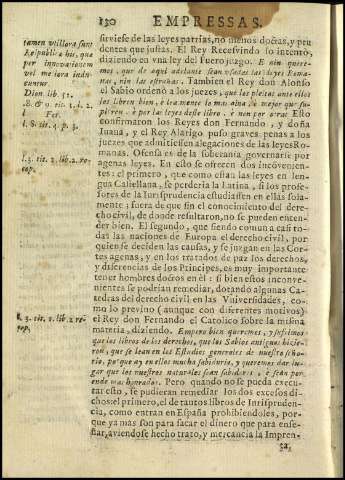 130 EMPRESSAS.
tamen viliora sunt
Reipublicæ his, quæ
per innovationem
vel meliora indu-
cuntur.
Dion. lib. 52.
l. 8. & 9. tit. 1. l. 2.
Fer.
l. 8. tit. 4. p. 3.
l. 3. tit. 2. lib. 2. re-
cop.
l. 3. tit. 1. lib. 2. re-
cop.
sirviese de las leyes patrias, no menos doctas, y pru
dentes que justas. El Rey Recesvindo lo intentò,
diziendo en vna ley del Fuero juzgo. E nin quere-
mos, que de aqui adelante sean usadas las leyes Roma-
nas, nin las estrañas. Tambien el Rey don Alonso
el Sabio ordenò a los juezes, que los pleitos ante ellos
los libren bien, è lea mente lo mas aina, è mejor que su-
pieren, è por las leyes deste libro, è non por otras Esto
confirmaron los Reyes don Fernando, y doña
Iuana, y el Rey Alarigo puso graves penas a los
juezes que admitiessen alegaciones de las leyes Ro-
manas. Ofensa es de la soberania governarse por
agenas leyes. En esto se ofrecen dos inconvenien-
tes: el primero, que como estan las leyes en len-
gua Castellana, se perderia la Latina, si los profe-
sores de la Iurisprudencia estudiassen en ellas sola-
mente; fuera de que sin el conocimiento del dere-
cho civil, de donde resultaron, no se pueden enten-
der bien. El segundo, que siendo comun a casi to-
das las naciones de Europa el derecho civil, por
quien se deciden las causas, y se juzgan en las Cor-
tes agenas, y en los tratados de paz los derechos,
y diferencias de los Principes, es muy importante
tener hombres doctos en èl: si bien estos inconve-
nientes se podrian remediar, dotando algunas Ca-
tedras del derecho civil en las Vniversidades, co-
mo lo previno (aunque con diferentes motivos)
el Rey don Fernando el Catolico sobre la misma
materia, diziendo. Empero bien queremos, y sufrimos
que los libros de los derechos, que los Sabios antiguos hicie-
ron, que se lean en los Estudios generales de nuestro seño-
rio, porque ay en ellos mucha sabiduria, y queremos dar lu-
gar que los nuestros naturales sean sabidores, è sean por
ende mas honrados. Pero quando no se pueda execu-
tar esto, se pudieran remediar los dos excesos di-
chos: el primero, el de tantos libros de Iurispruden-
cia, como entran en España prohibiendolos, por-
que ya mas son para sacar el dinero que para ense-
ñar, aviendose hecho trato, y mercancia la Impren-
ta,